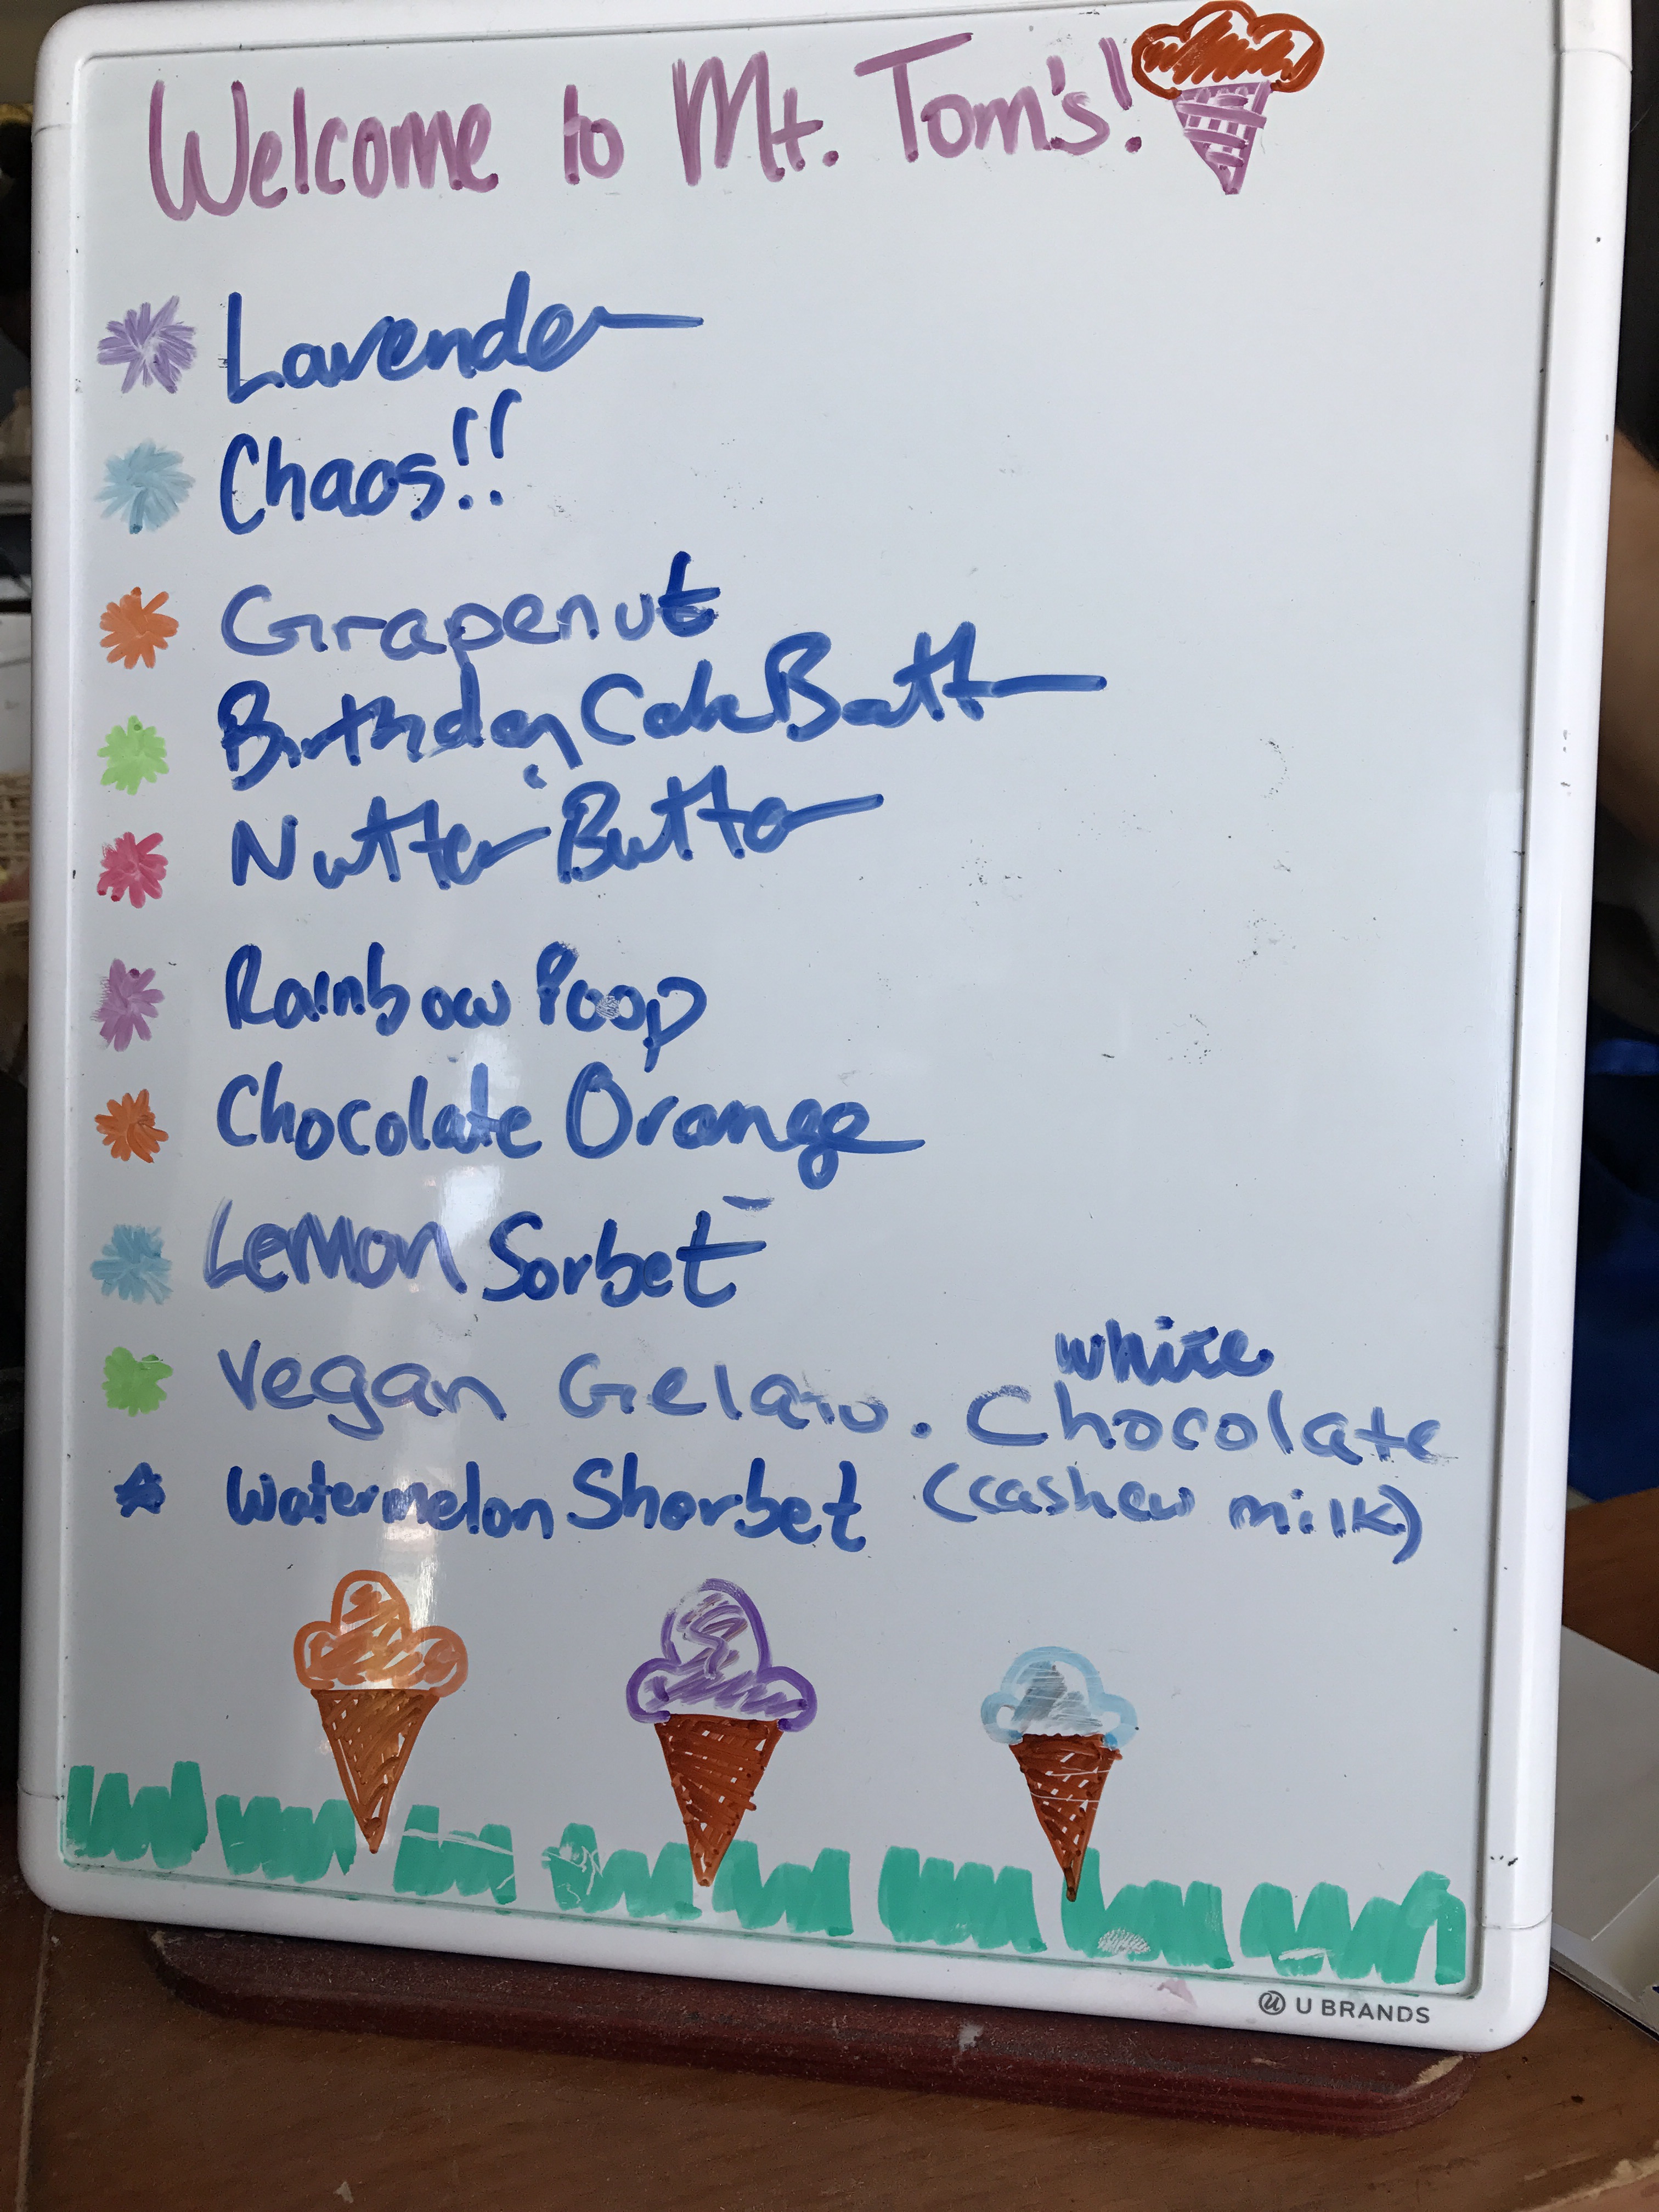 Welcome to Mt. Tom's!
Lavender
Chaos!!
Grapenut
Birthday Cake Batter
Nutter Butter
Rainbow Poop
Chocolate Orange
Lemon Sorbet
white
Vegan Gelato. Chocolate
Watermelon Shorbet (cashew milk)
U BRANDS